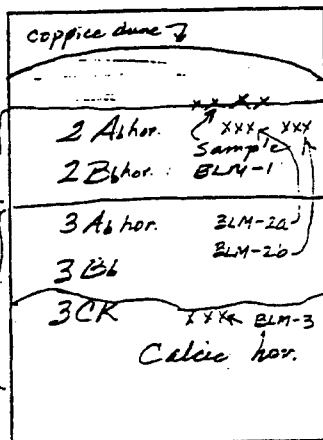 coppice dune
x x x x
2 Ab hor. xxx xxx
Sample
2 Bb hor. BLM-1
3 Ab hor. BLM-2a
BLM-2b
3 Bb
3 CK xxx BLM-3
Calcic hor.